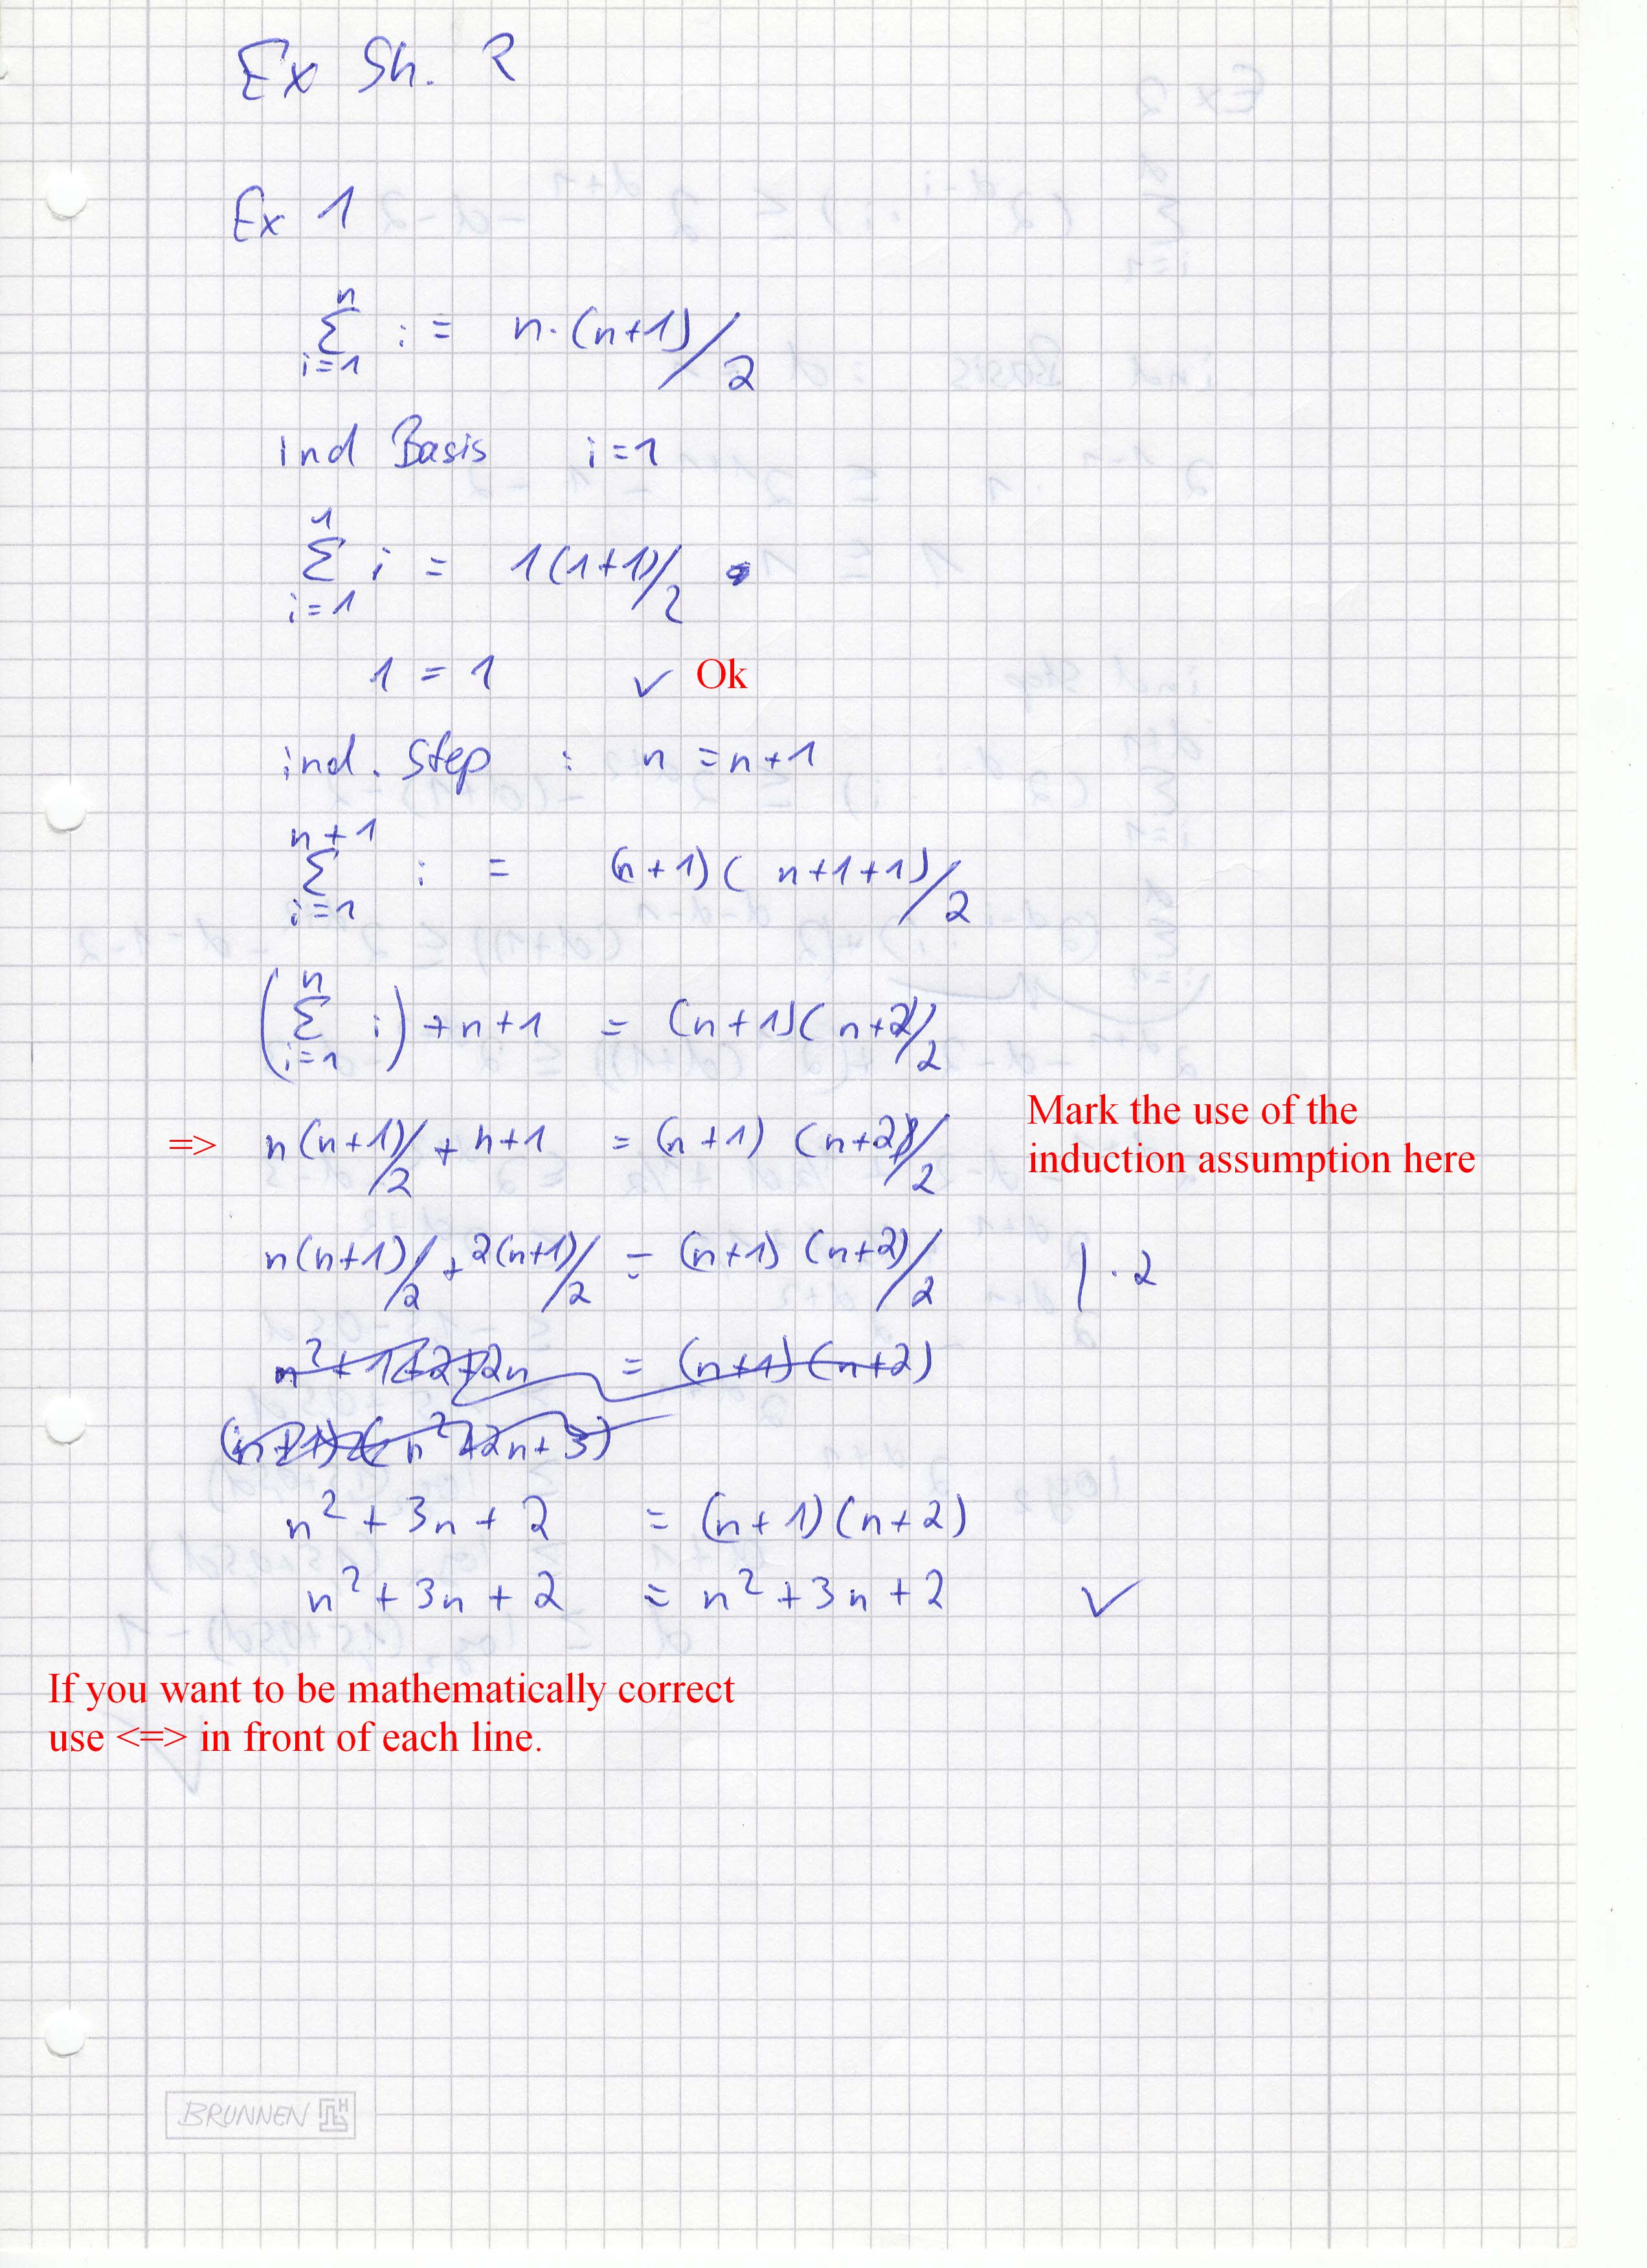 Ex Sh. 2
Ex 1
n
∑ i = n·(n+1)/2
i=1
Ind Basis i=1
1
∑ i = 1(1+1)/2
i=1
1 = 1 ✓ Ok
ind. Step : n = n+1
n+1
∑ i = (n+1)( n+1+1)/2
i=1
n
(∑ i) + n+1 = (n+1)(n+2)/2
i=1
Mark the use of the
=> n(n+1)/2 + n+1 = (n+1) (n+2)/2
induction assumption here
n(n+1)/2 + 2(n+1)/2 = (n+1) (n+2)/2 | · 2
= (n+1)(n+2)
n² + 3n + 2 = (n+1)(n+2)
n² + 3n + 2 = n² + 3n + 2 ✓
If you want to be mathematically correct
use <=> in front of each line.
BRUNNEN